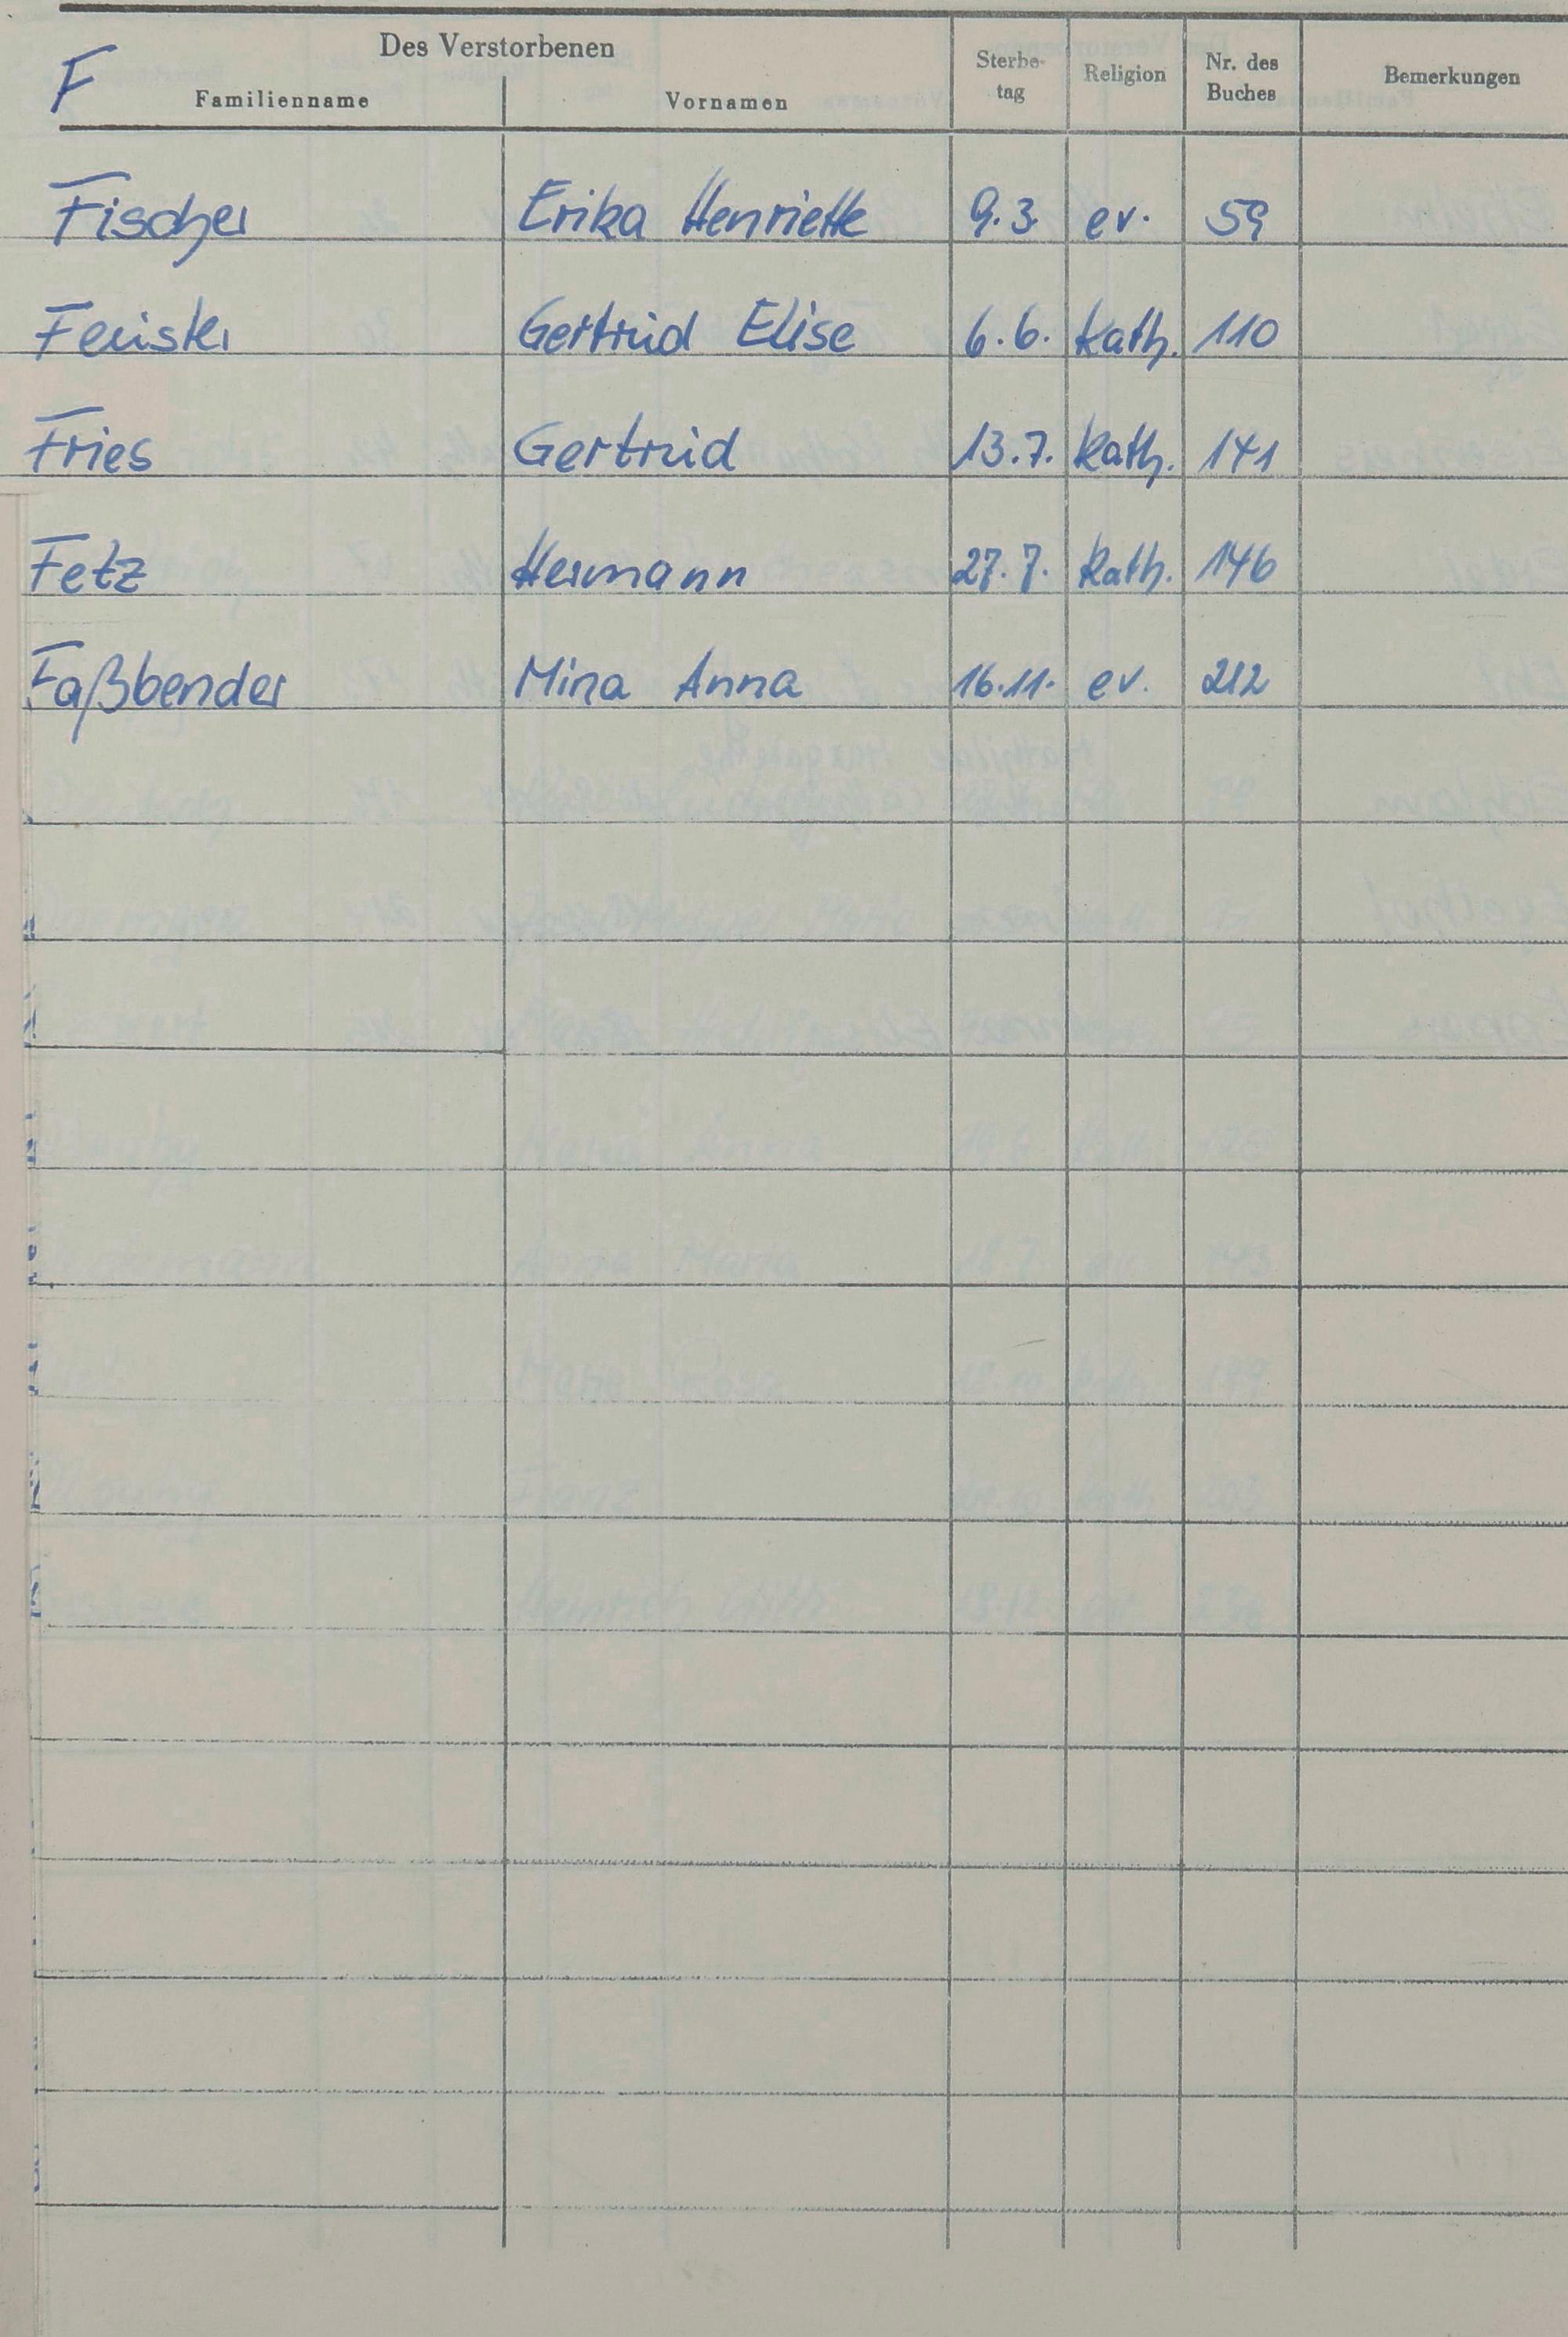 F
Des Verstorbenen
Familienname Vornamen Sterbe-tag Religion Nr. des Buches Bemerkungen
Fischer Erika Henriette 9.3. ev. 59
Feuster Gertrud Elise 6.6. kath. 110
Fries Gertrud 13.7. kath. 141
Fetz Hermann 27.7. kath. 146
Faßbender Mina Anna 16.11. ev. 212